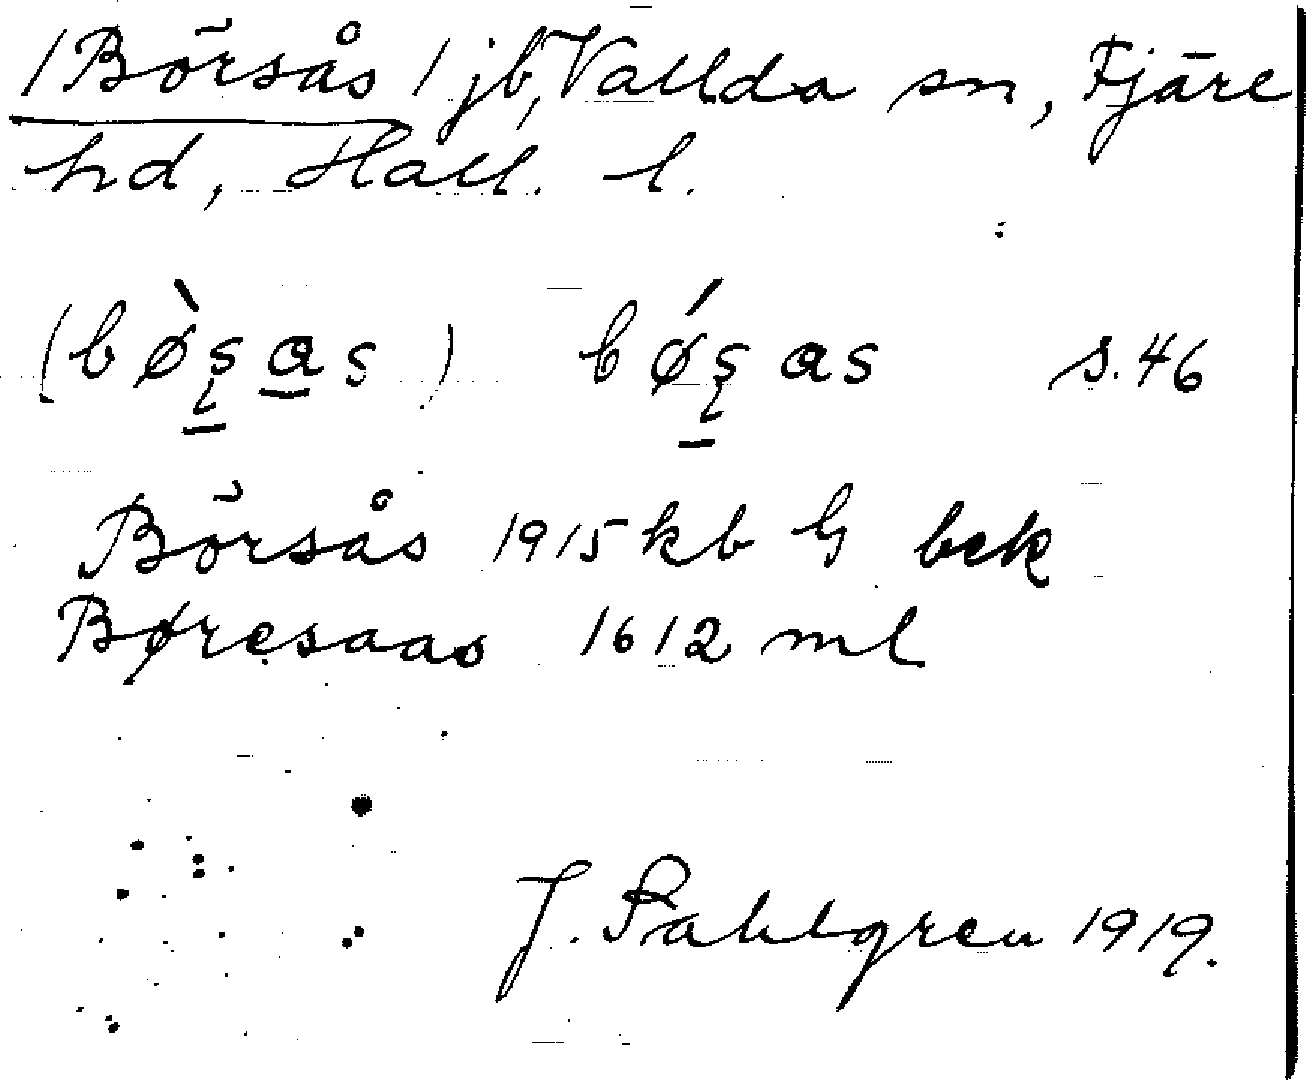 /Börsås/ jb, Vallda sn, Fjäre
hd, Hall. l.
(bø̀ş̱a̱s) bǿş̱as s. 46
Börsås 1915 kb G bek
Børesaas 1612 ml
J. Sahlgren 1919.